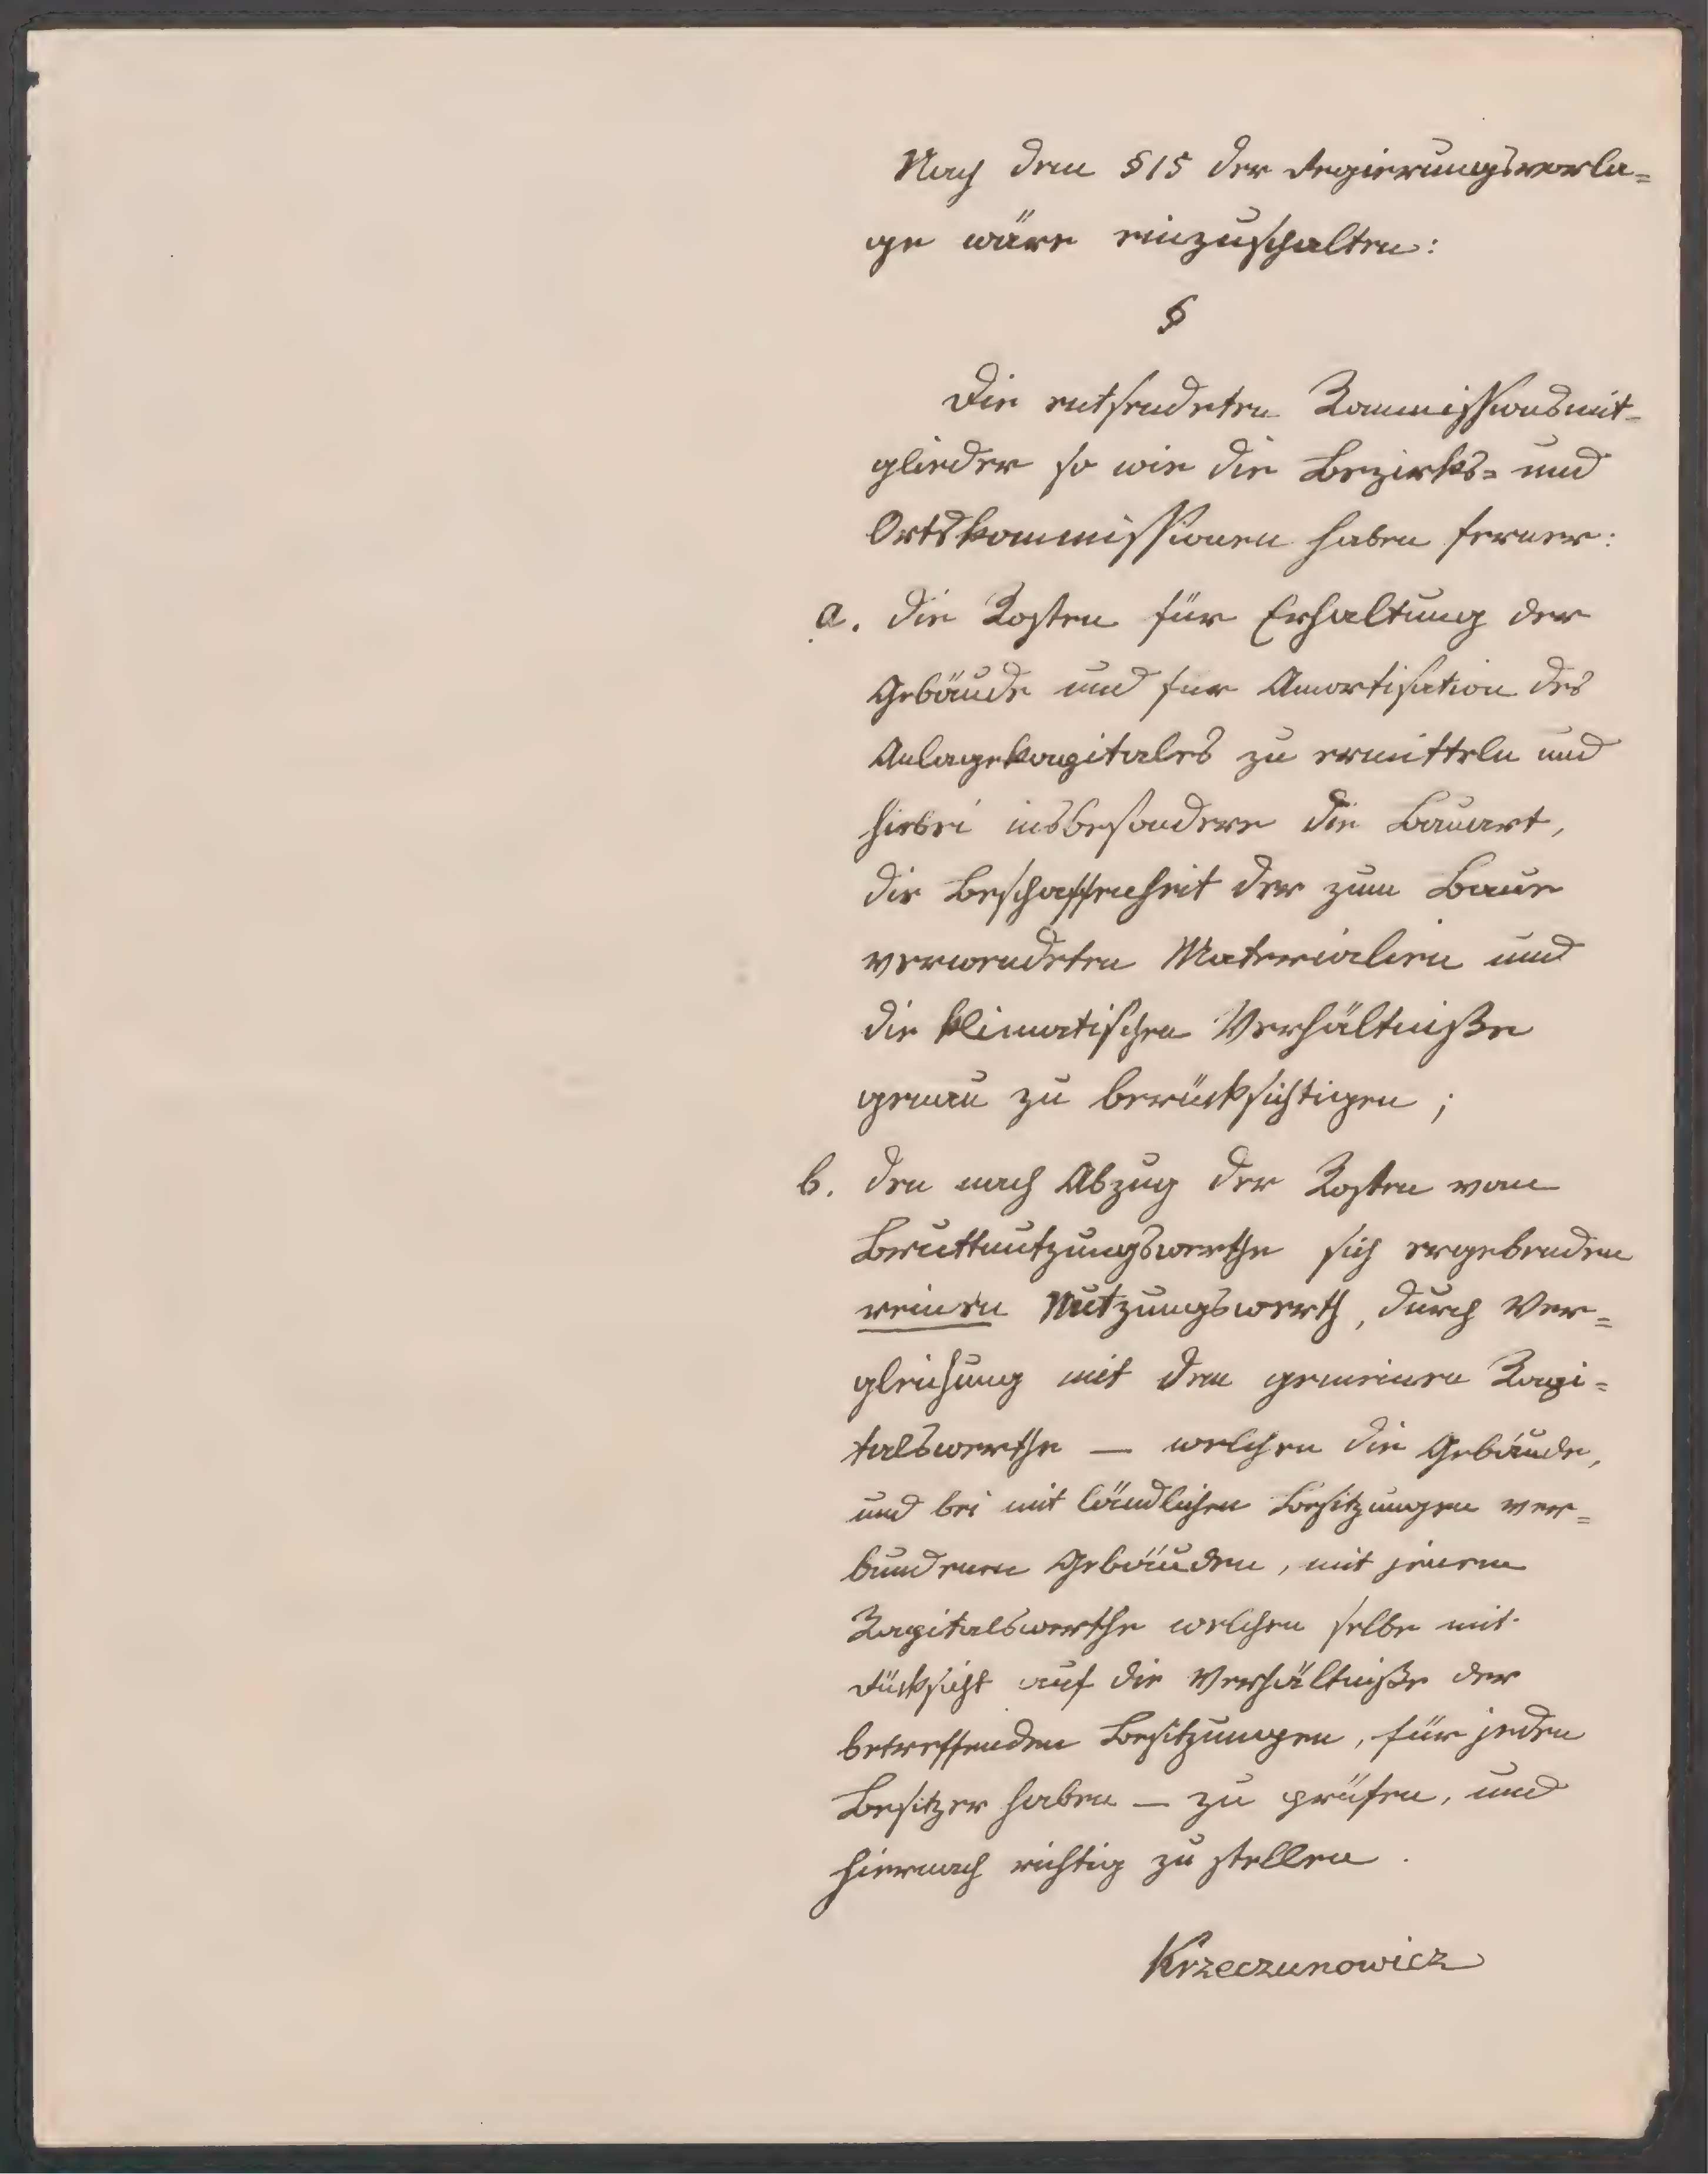 Nach dem § 15 der Regierungsvorla=
ge wäre einzuschalten:
§
Die entsendeten Kommissionsmit=
glieder so wie die Bezirks= und
Ortskommissionen haben ferner:
a. die Kosten für Erhaltung der
Gebäude und für Amortisation des
Anlagekapitales zu ermitteln und
hiebei insbesondere die Bauart,
die Beschaffenheit der zum Baue
verwendeten Materialien und
die klimatischen Verhältniße
genau zu berücksichtigen;
b. den nach Abzug der Kosten vom
Bruttnutzungswerthe sich ergebenden
reinen Nutzungswerth, durch Ver=
gleichung mit dem gemeinen Kapi=
talswerthe — welchen die Gebäude,
und bei mit ländlichen Besitzungen ver=
bundenen Gebäuden, mit jenem
Kapitalswerthe welchen selbe mit
Rücksicht auf die Verhältniße der
betreffenden Besitzungen, für jeden
Besitzer haben — zu prüfen, und
hiernach richtig zu stellen.
Krzeczunowicz